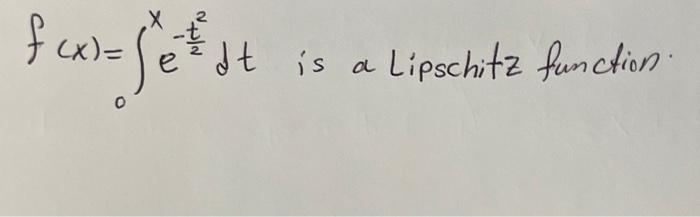 f(x)=∫₀ˣ e^{-t²/2} dt is a Lipschitz function.